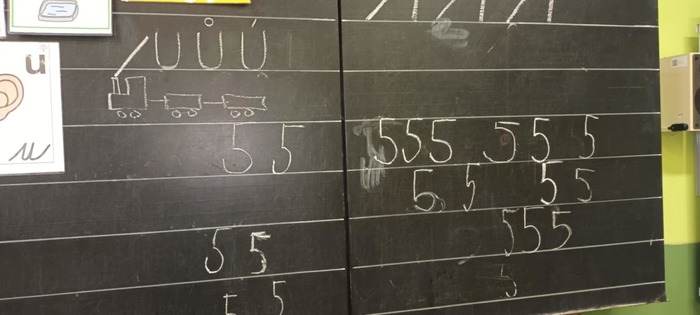 U Ů Ú
u
u
5 5
5 5
5 5
555 55 5
5 5 55
555
5